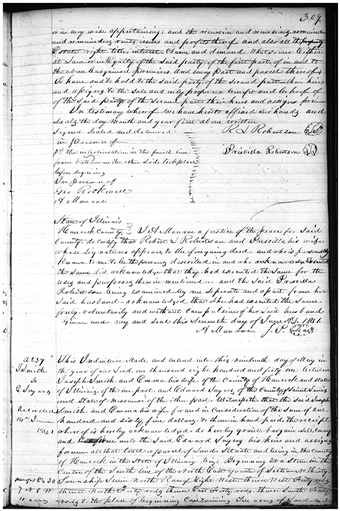 369
or in any wise appertaining: and the reversion and reversions, remainder
and remainders, rents, issues and profits thereof, and also all the
Estate right title interest Claim and demand whatsoever Either
at Law or in Equity of the said party of the first part of in and to
the above bargained premises and every part and parcel thereof,
to have and to hold to the said party of the second part their heirs
and assigns to the sole and only proper use benefit and behoof of
of the said party of the second part their heirs and assigns forever
In testimony whereof we have hereto affixed our hands and
seals the day Month and year first above written
Signed Sealed and delivered
in presence of
R L Robertson
the interlineation in the fourth line
Priscilla Robertson
from bottom on the other side took place
before signing
In presence of
Geo Rockwell
A Monroe
State of Illinois
Hancock County I A Monroe a Justice of the peace for said
County do certify that Robert L Robertson and Priscilla his wife
whose signatures appear to the foregoing deed and who is personally
known to me to be the persons described in and who
the same did acknowledge that they had executed the same for the
uses and purposes therein mentioned and the said Priscilla
Robertson being examined by me separate and apart from her
said husband acknowledged that she had executed the same
freely voluntarily and without Compulsion of her said husband
Given under my hand and seal this Seventh day of June AD 1841
A Monroe J.P.
This Indenture Made and entered into this nineteenth day of May in
J Smith
the year of our Lord one thousand eight hundred and forty one between
to
Joseph Smith and Emma his wife of the County of Hancock and state
E Sayers
of Illinois of the one part and Edward Sayers of the County of Saint Louis
and State of Missouri of the other part. Witnesseth that the said Joseph
Recorded
Smith and Emma his wife for and in Consideration of the Sum of one
June
hundred and Sixty five dollars to them in hand paid the receipt
1841
whereof is hereby acknowledged do hereby grant bargain sell convey
and unto the said Edward Sayers his heirs and assigns
forever all that tract or parcel of Land Situate and being in the County
of Hancock in the State of Illinois Beginning at a stone in the
Center of the South line of the North East quarter of Section
Township Seven North Range Eight West, thence West Forty rods
thence North Forty rods, thence East Forty rods thence South Forty
rods to the place of beginning Containing Ten acres of Land